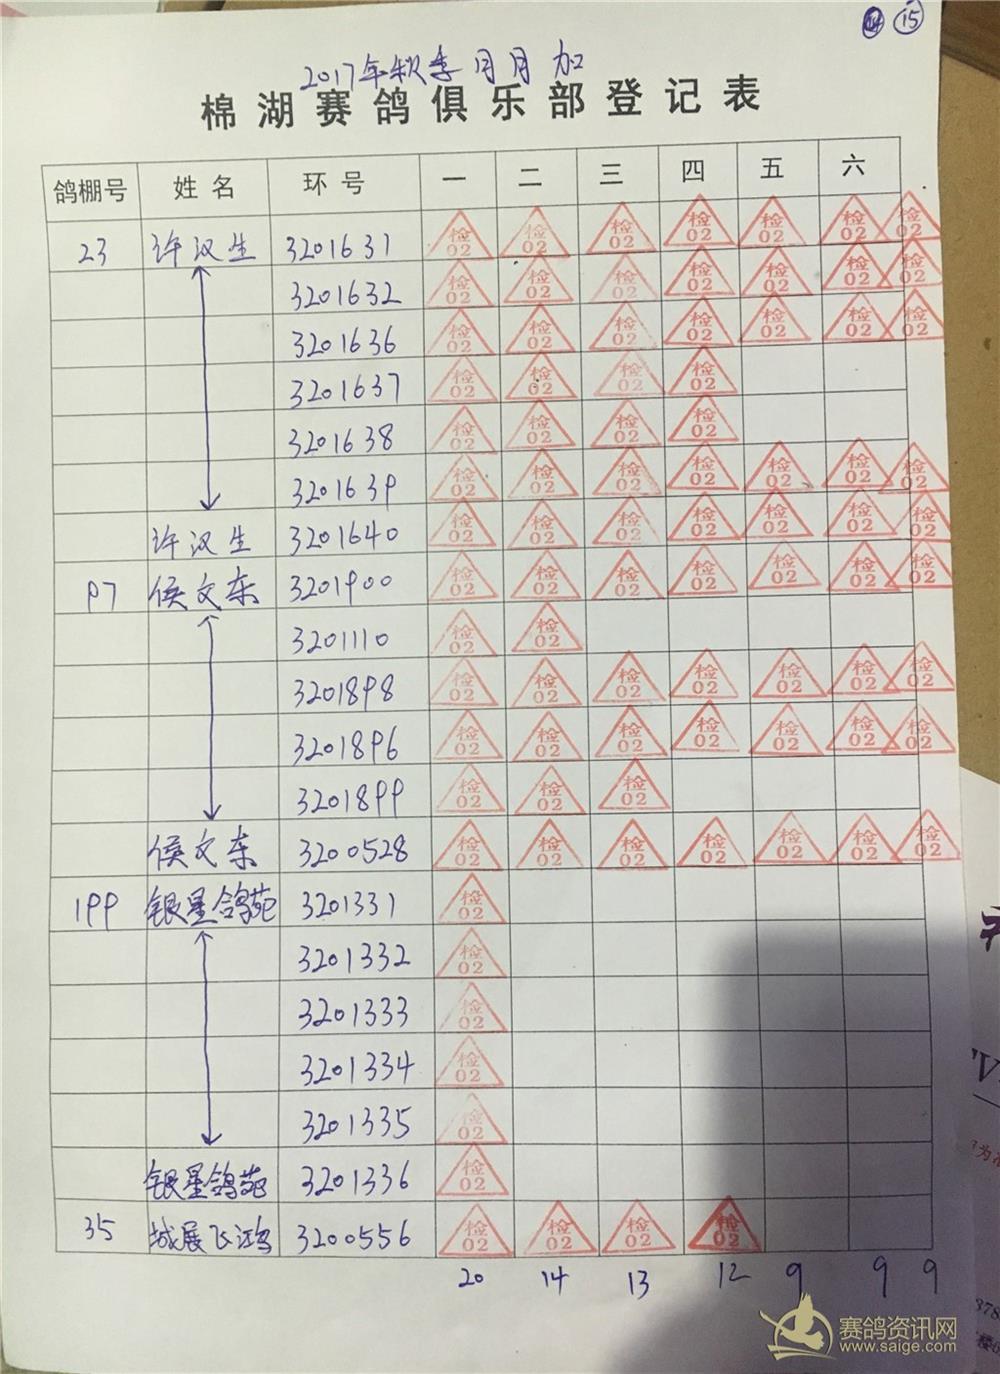 15
2017年秋季月月加
棉湖赛鸽俱乐部登记表
鸽棚号 姓名 环号 一 二 三 四 五 六
23 许汉生 3201631 检02 检02 检02 检02 检02 检02 检02
3201632 检02 检02 检02 检02 检02 检02 检02
3201636 检02 检02 检02 检02 检02 检02 检02
3201637 检02 检02 检02 检02
3201638 检02 检02 检02 检02
3201639 检02 检02 检02 检02 检02 检02 检02
许汉生 3201640 检02 检02 检02 检02 检02 检02 检02
97 侯文东 3201900 检02 检02 检02 检02 检02 检02 检02
3201110 检02 检02
3201898 检02 检02 检02 检02 检02 检02 检02
3201896 检02 检02 检02 检02 检02 检02 检02
3201899 检02 检02 检02
侯文东 3200528 检02 检02 检02 检02 检02 检02 检02
199 银星鸽苑 3201331 检02
3201332 检02
3201333 检02
3201334 检02
3201335 检02
银星鸽苑 3201336 检02
35 城展飞鸿 3200556 检02 检02 检02 检02
20 14 13 12 9 9 9
赛鸽资讯网
www.saige.com